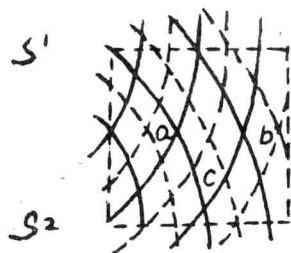 S¹
a b
c
S2